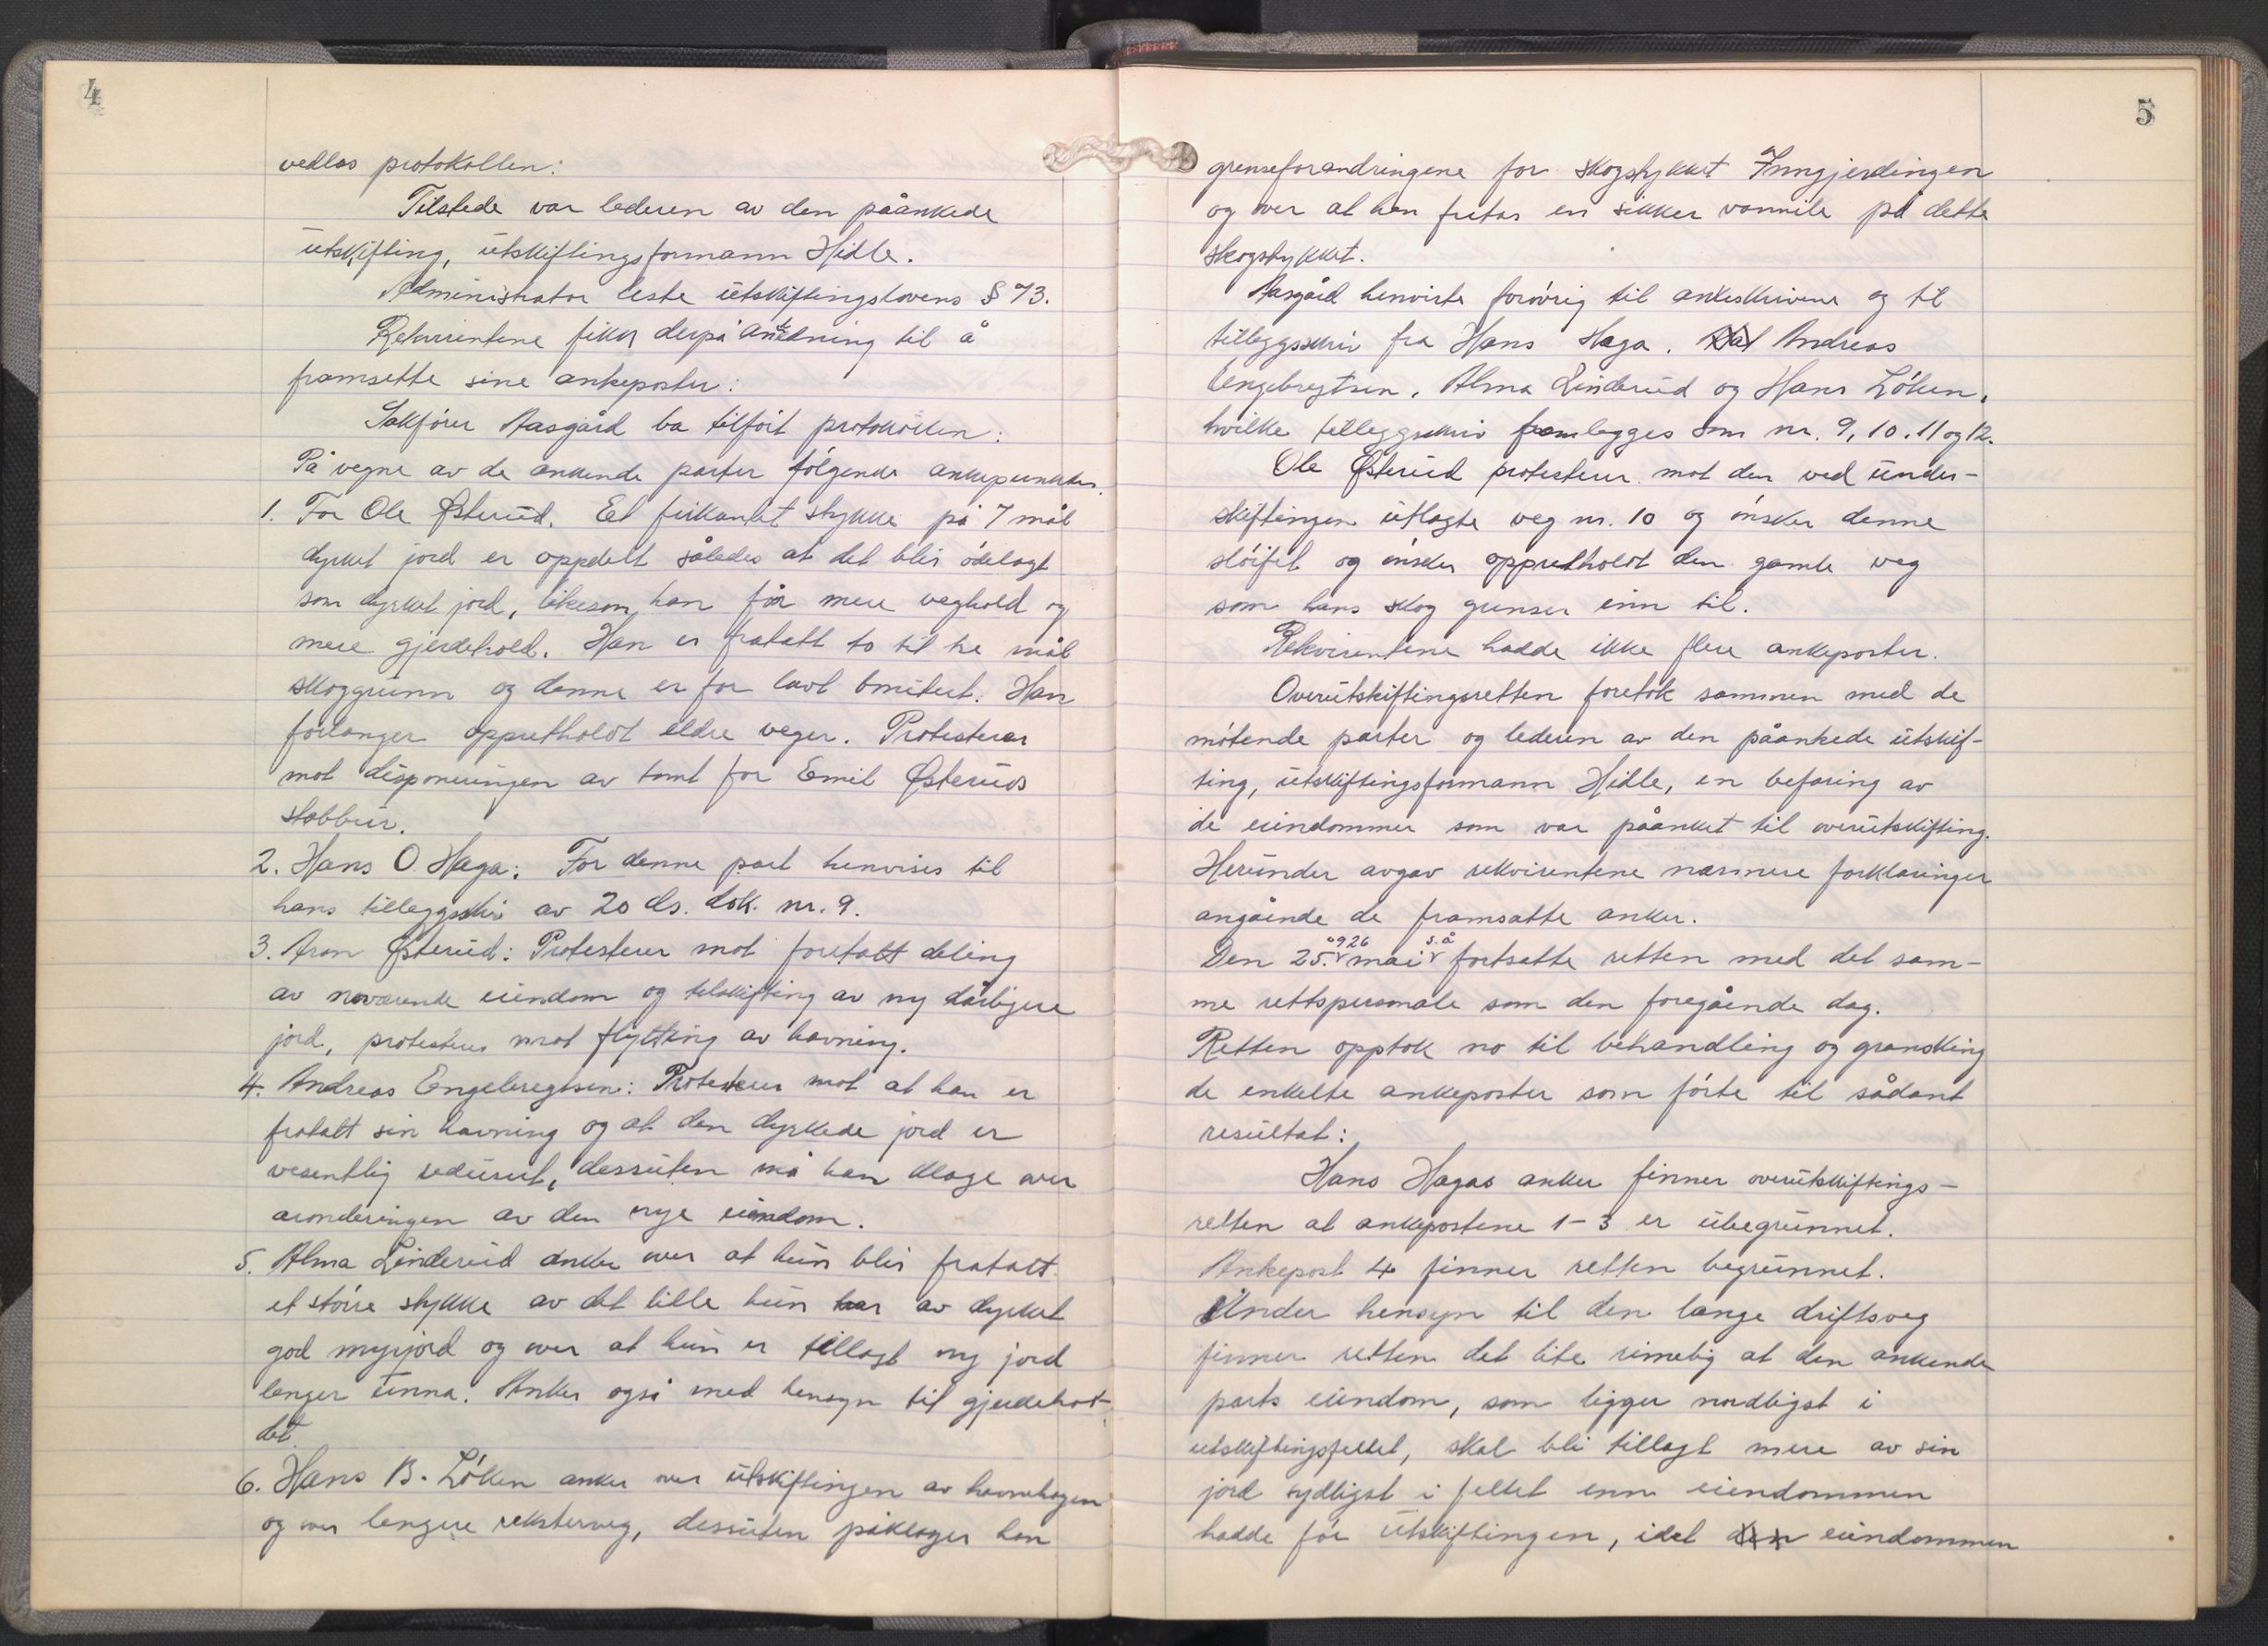 4
vedlas protokollen:
Tilstede var lederen av den påankede
utskifting, utskiftingsformann Hidle.
Administrator leste utskiftingslovens § 73.
Rekvirentene fikk derpå anledning til å
framsette sine ankeposter:
Sakfører Aasgård ba tilført protokollen:
På vegne av de ankende parter følgende ankepunkter.
1. For Ole Østerud. Et firkantet stykke på 7 mål
dyrket jord er oppdelt således at det blir ødelagt
som dyrket jord, likesom han får mere veghold og
mere gjerdehold. Han er fratatt to til tre mål
skoggrunn og denne er for lavt bonitert. Han
forlanger opprettholdt eldre veger. Protesterer
mot disponeringen av tomt for Emil Østeruds
stabbur.
2. Hans O. Haga: For denne part henvises til
hans tilleggsskriv av 20 ds. dok. nr. 9.
3. Aron Østerud: Protesterer mot foretatt deling
av nåværende eiendom og tilskifting av ny dårligere
jord, protesterer mot flytting av havning.
4. Andreas Engebregtsen: Protesterer mot at han er
fratatt sin havning og at den dyrkede jord er
vesentlig redusert, dessuten må han klage over
aronderingen av den nye eiendom.
5. Alma Linderud anker over at hun blir fratatt
et større stykke av det lille hun har av dyrket
god myrjord og over at hun er tillagt ny jord
lenger unna. Anker også med hensyn til gjerdehol-
det.
6. Hans B. Løken anker over utskiftingen av havnehagen
og over lengere veg, dessuten påklager han
5
grenseforandringene for skogstykket Inngjerdingen
og over at han fratas en sikker vannile på dette
skogstykket.
Aasgård henviste forøvrig til ankeskrivene og til
tilleggsskriv fra Hans Haga. Andreas
Engebregtsen, Alma Linderud og Hans Løken,
hvilke tilleggsskriv framlegges som nr. 9, 10, 11 og 12.
Ole Østerud protesterer mot den ved under-
skiftingen utlagte veg nr. 10 og ønsker denne
sløifet og ønsker opprettholdt den gamle veg
som hans skog grenser inn til.
Rekvirentene hadde ikke flere ankeposter.
Overutskiftingsretten foretok sammen med de
møtende parter og lederen av den påankede utskif-
ting, utskiftingsformann Hidle, en befaring av
de eiendommer som var påanket til overutskifting.
Herunder avgav rekvirentene nærmere forklaringer
angående de framsatte anker.
Den 25. og 26 mai s.å fortsatte retten med det sam-
me rettspersonale som den foregående dag.
Retten opptok no til behandling og gransking
de enkelte ankeposter som førte til sådant
resultat:
Hans Hagas anker finner overutskiftings-
retten at ankepostene 1-3 er ubegrunnet.
Ankepost 4 finner retten begrunnet.
Under hensyn til den lange driftsveg
finner retten det lite rimelig at den ankende
parts eiendom, som ligger nordligst i
utskiftingsfeltet, skal bli tillagt mere av sin
jord sydligst i feltet enn eiendommen
hadde før utskiftingen, idet den eiendommen